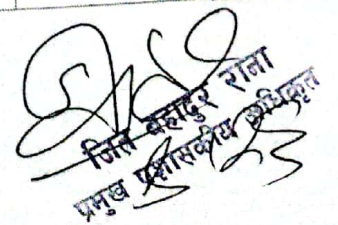 जित बहादुर रोना
प्रमुख प्रशासकीय अधिकृत